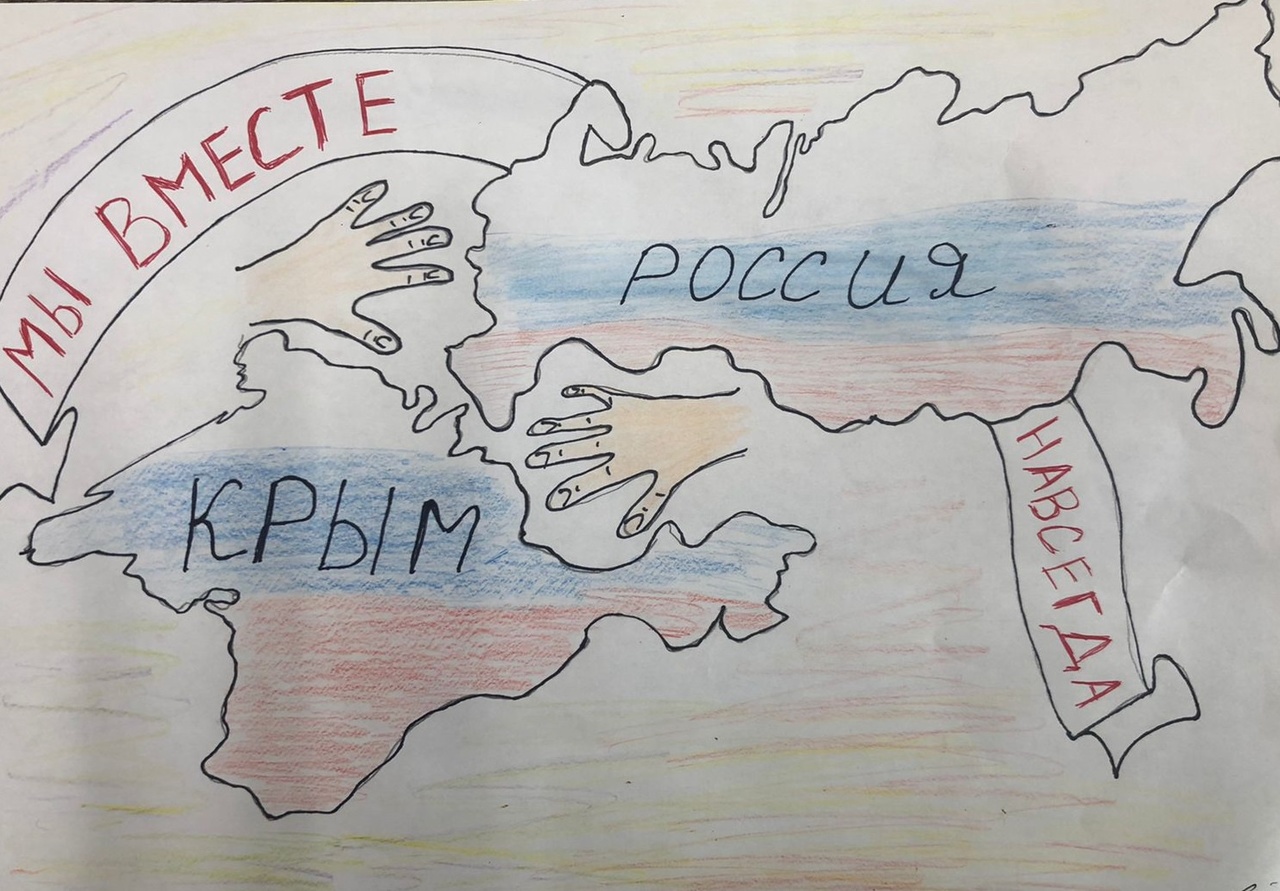 МЫ ВМЕСТЕ
РОССИЯ
КРЫМ
НАВСЕГДА